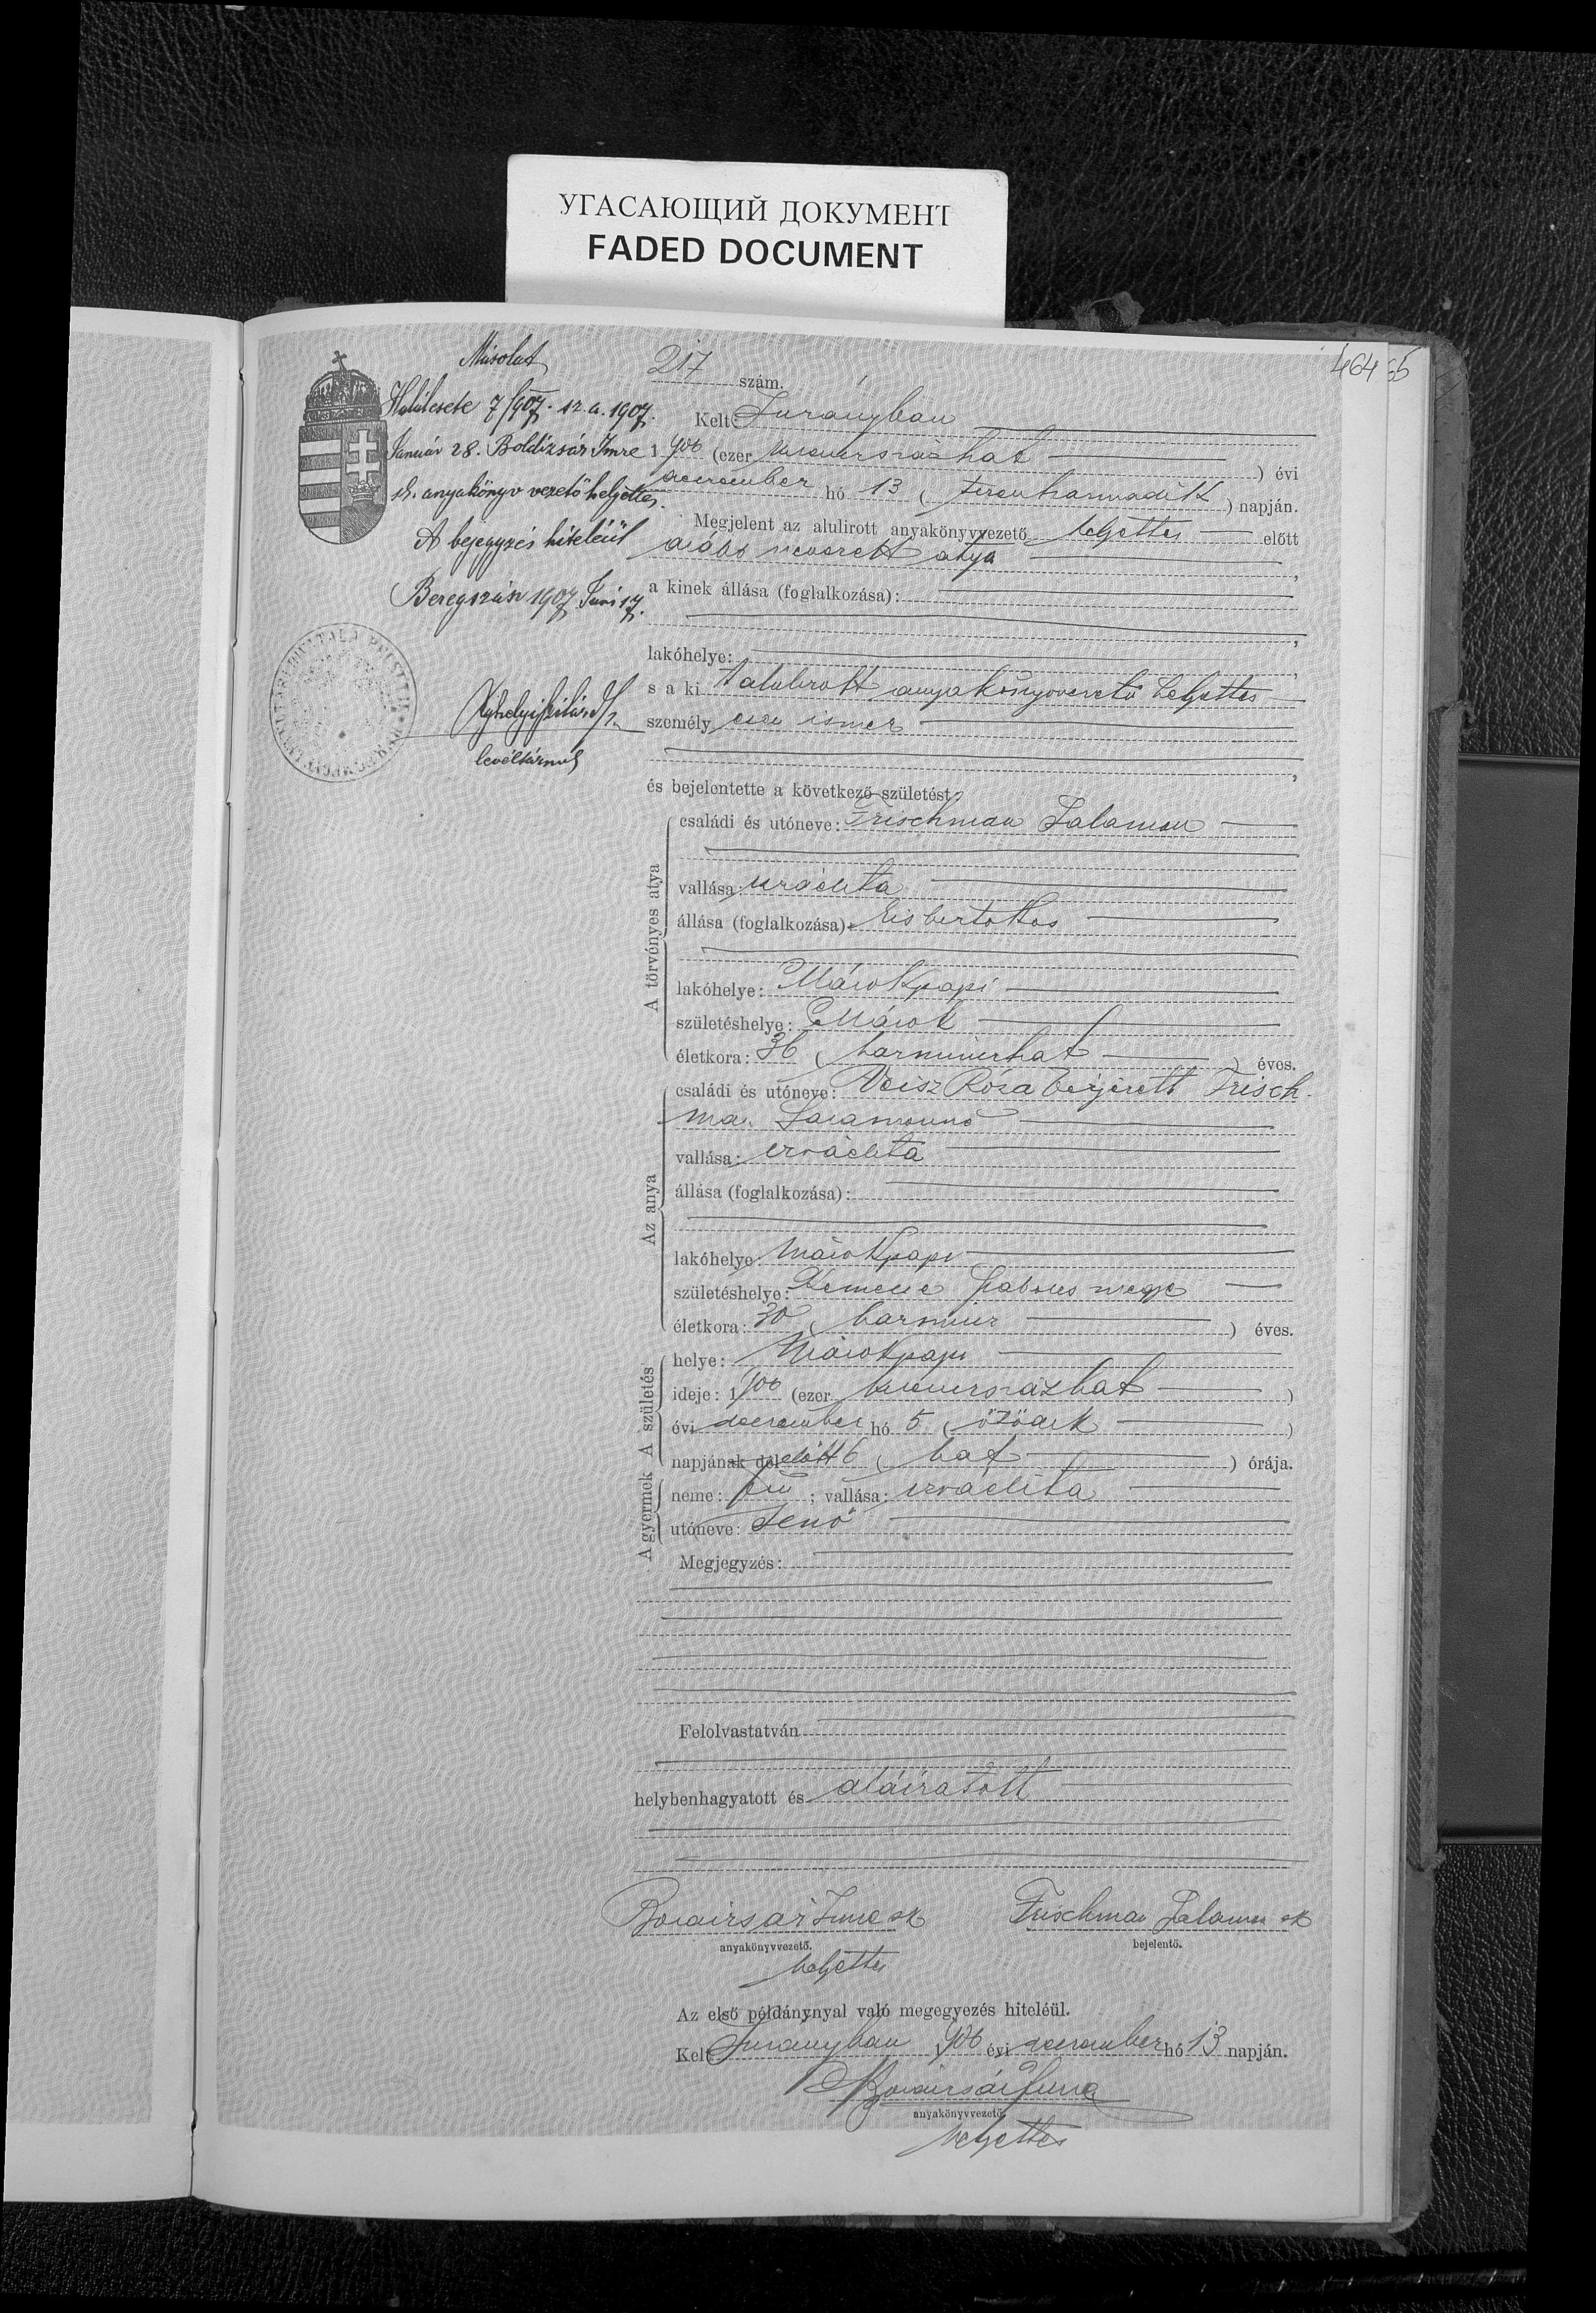 УГАСАЮЩИЙ ДОКУМЕНТ
FADED DOCUMENT
464
Másolat
Halálesete 7/907. 12. a. 1907.
Január 28. Boldizsár Imre
sk. anyakönyv vezető helyettes.
A bejegyzés hiteléül
Beregszász 1907 Juni 17.
levéltárnok
217 szám.
Kelt Surányban
1906 (ezer kilencszázhat ) évi
december hó 13 ( tizenharmadik ) napján.
Megjelent az alulirott anyakönyvvezető helyettes előtt
alább nevezett atya ,
a kinek állása (foglalkozása):
,
lakóhelye: ,
s a ki t alulirott anyakönyvvezető helyettes
személyesen ismer
,
és bejelentette a következő születést:
A törvényes atya
családi és utóneve: Frischman Salamon
vallása: izraelita
állása (foglalkozása): kisbirtokos
lakóhelye: Márokpapi
születéshelye: Márok
életkora: 36 ( harminczhat ) éves.
Az anya
családi és utóneve: Veisz Róza férjezett Frisch-
man Salamonné
vallása: izraelita
állása (foglalkozása):
lakóhelye: Márokpapi
születéshelye: Kemecse Szabolcs megye
életkora: 30 ( harmincz ) éves.
A születés
helye: Márokpapi
ideje: 1906 (ezer kilencszázhat )
évi december hó 5 ( ötödik )
napjának délelőtt 6 ( hat ) órája.
A gyermek
neme: fiu ; vallása: izraelita
utóneve: Jenő
Megjegyzés:
Felolvastatván
helybenhagyatott és aláiratott
Boldizsár Imre sk
anyakönyvvezető.
helyettes
Frischman Salamon sk
bejelentő.
Az első példánynyal való megegyezés hiteléül.
Kelt Surányban 1906 évi december hó 13 napján.
Boldizsár Imre
anyakönyvvezető
helyettes